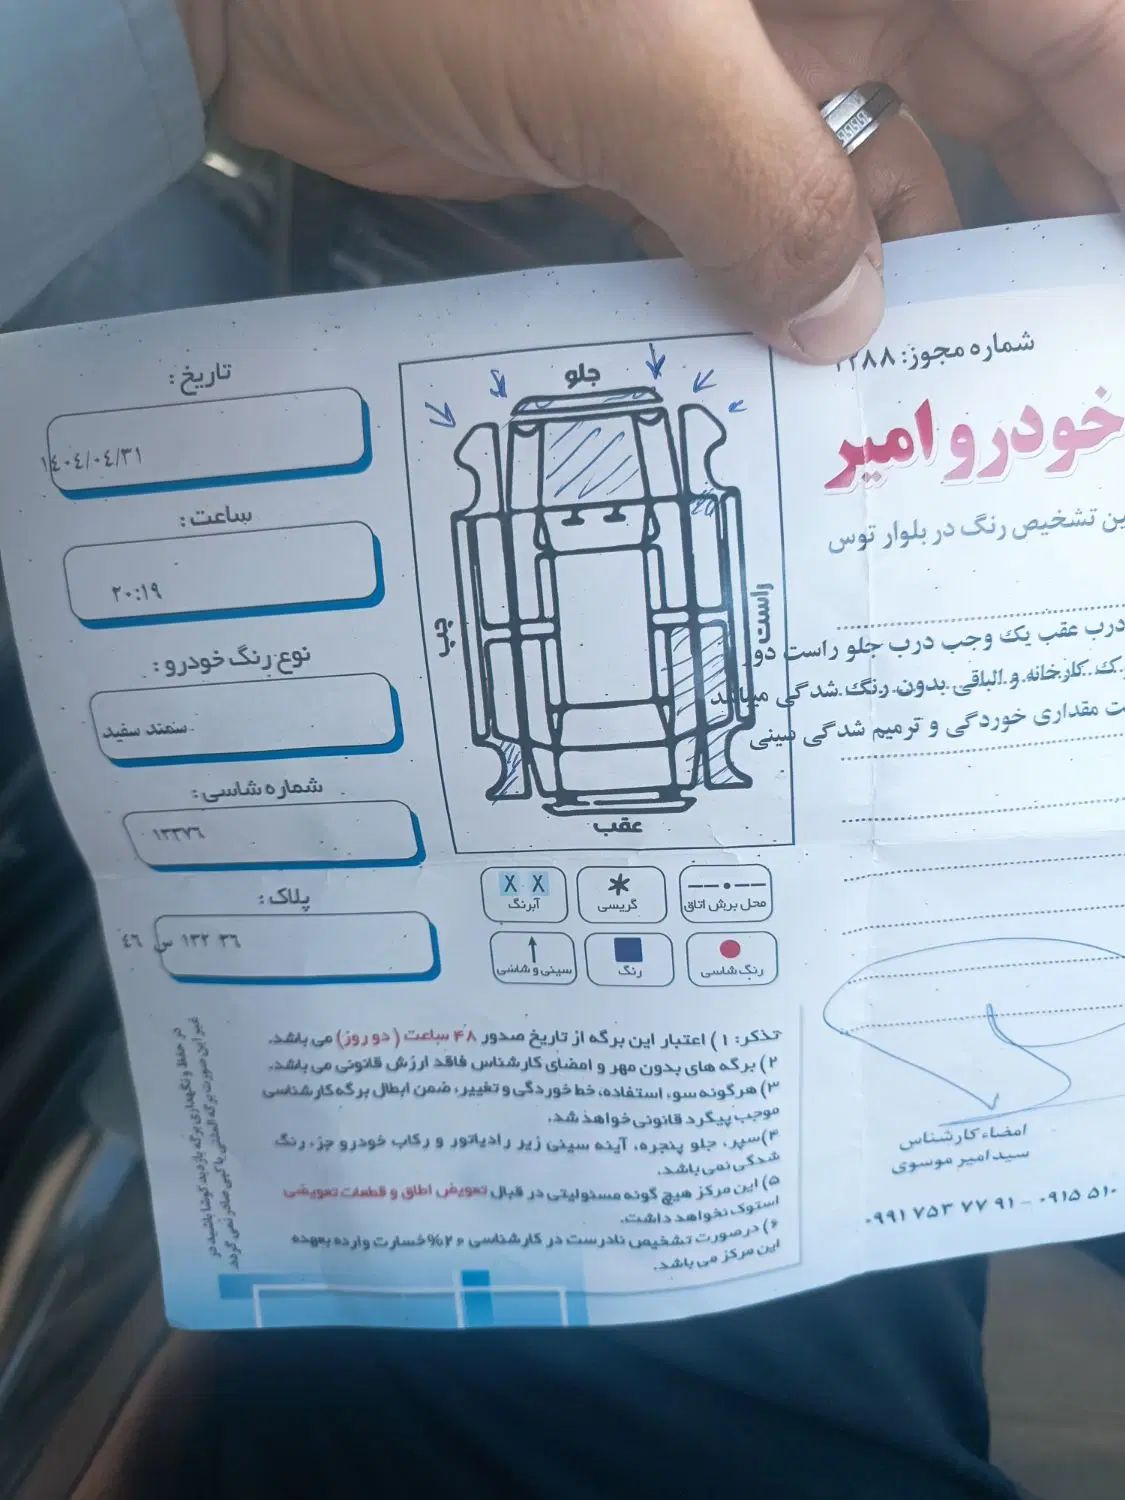 شماره مجوز: ۲۸۸
خودرو امیر
ین تشخیص رنگ در بلوار توس
درب عقب یک وجب درب جلو راست دور
ک کارخانه و الباقی بدون رنگ شدگی میباشد
ت مقداری خوردگی و ترمیم شدگی سینی
امضاء کارشناس
سید امیر موسوی
۰۹۹۱ ۷۵۳ ۷۷ ۹۱ - ۰۹۱۵ ۵۱۰
جلو
راست
چپ
عقب
محل برش اتاق
گریسی
X X
آبرنگ
رنگ شاسی
رنگ
سینی و شاسی
تاریخ :
۱٤۰٤/۰٤/۳۱
ساعت :
۲۰:۱۹
نوع رنگ خودرو :
سمند سفید
شماره شاسی :
۱۳۳۷٦
پلاک :
٤٦ س ۱۳۲ ۳٦
تذکر: ۱) اعتبار این برگه از تاریخ صدور ۴۸ ساعت ( دو روز) می باشد.
۲) برگه های بدون مهر و امضای کارشناس فاقد ارزش قانونی می باشد.
۳) هرگونه سو، استفاده، خط خوردگی و تغییر، ضمن ابطال برگه کارشناسی
موجب پیگرد قانونی خواهد شد.
۴)سپر، جلو پنجره، آینه سینی زیر رادیاتور و رکاب خودرو جز، رنگ
شدگی نمی باشد.
۵) این مرکز هیچ گونه مسئولیتی در قبال تعویض اطاق و قطعات تعویضی
استوک نخواهد داشت.
۶) درصورت تشخیص نادرست در کارشناسی ۲۰% خسارت وارده بعهده
این مرکز می باشد.
در حفظ و نگهداری برگه بازدید کوشا باشید در
غیر این صورت برگه المثنی یا کپی صادر نمی گردد